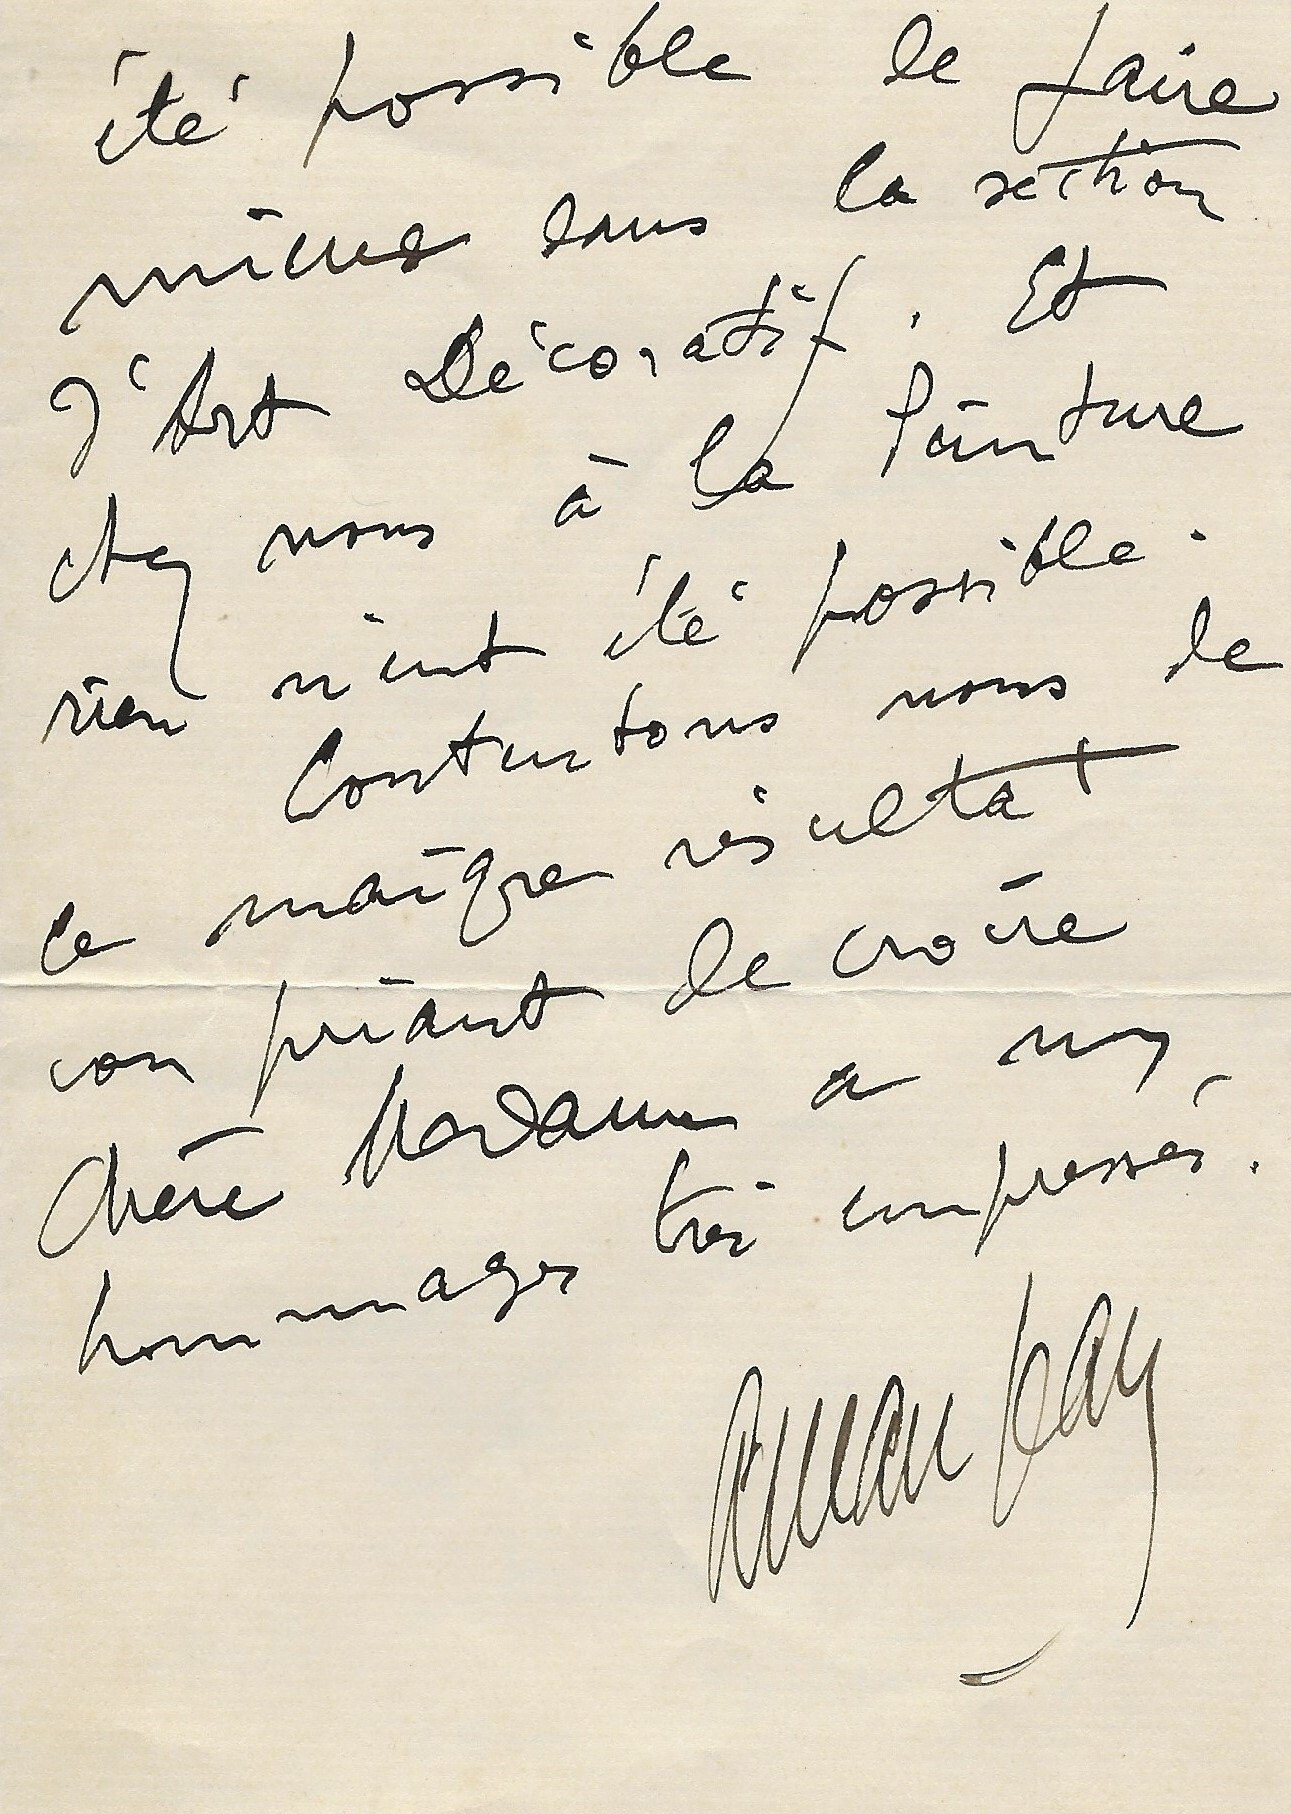 été possible de faire
mieux dans la section
d'Art Décoratif. Et
chez nous à la Peinture
rien n'eut été possible.
Contentons nous de
ce maigre résultat
en priant de croire
Chère Madame a mes
hommages très empressés.
Aman Jean